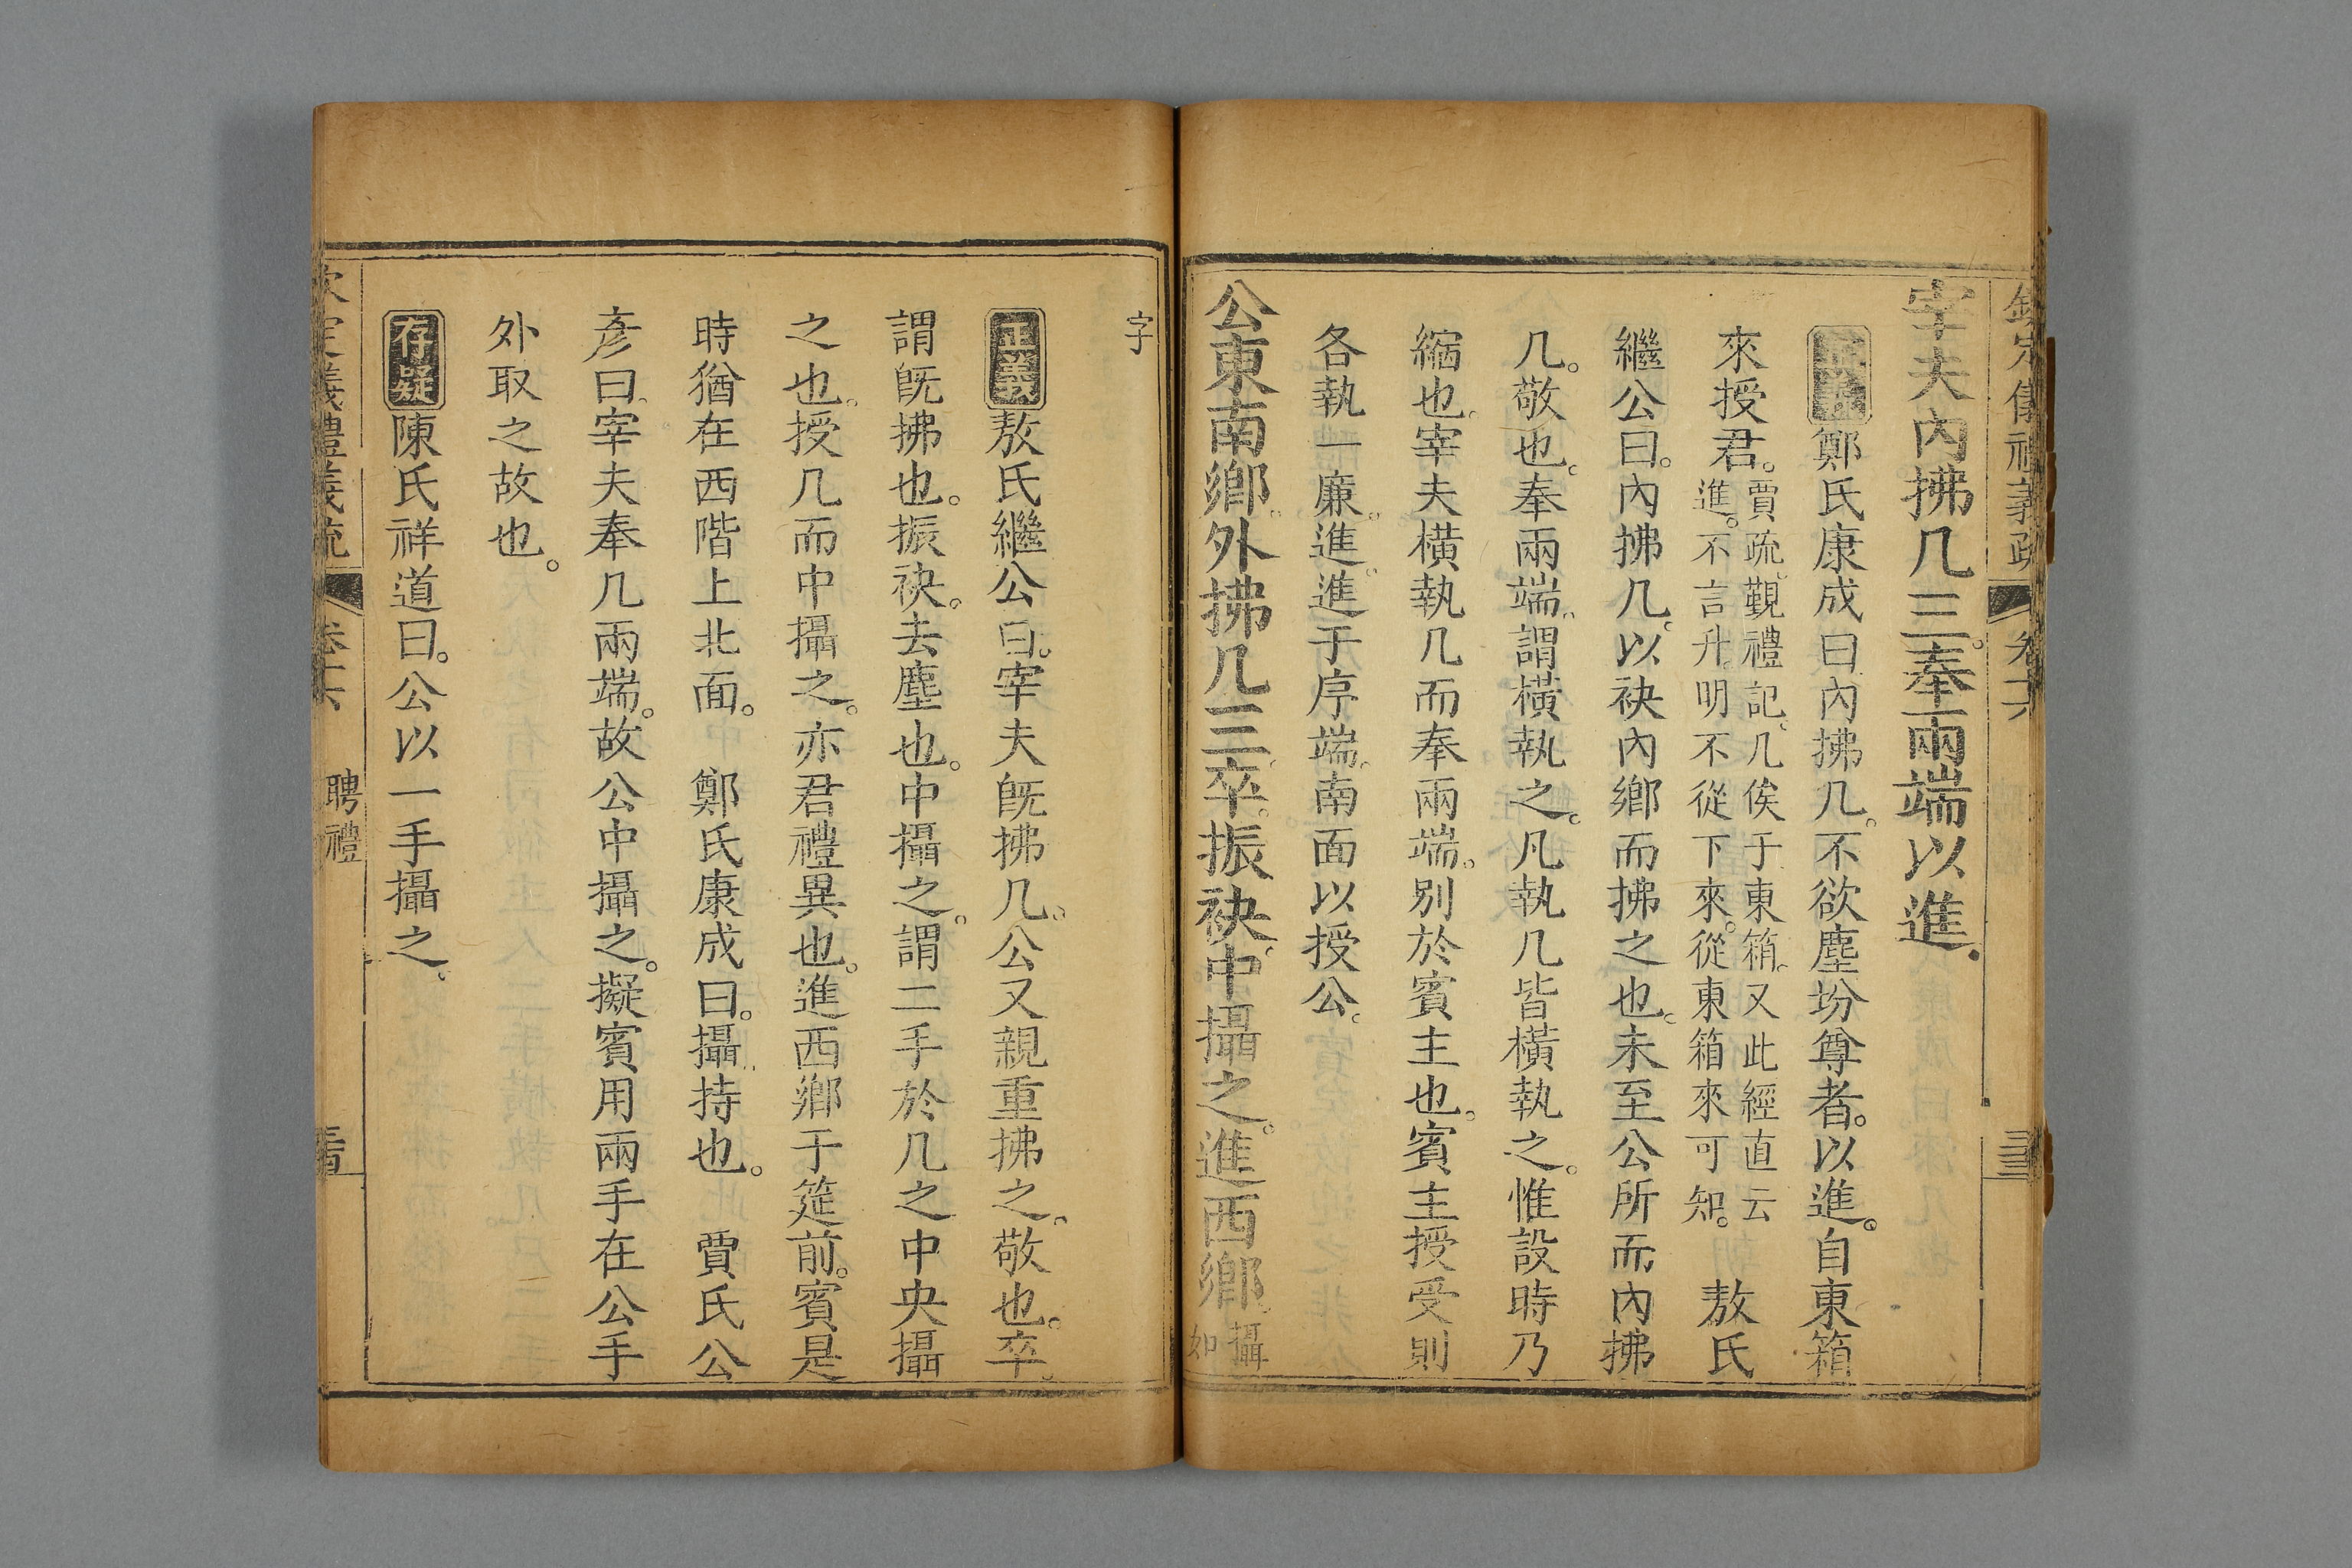 欽定儀禮義疏 卷十六
宰夫內拂几三。奉兩端以進。
正義鄭氏康成曰內拂几。不欲塵坋尊者。以進。自東箱
來授君。賈疏。覲禮記。几俟于東箱。又此經直云進。不言升。明不從下來。從東箱來可知。 敖氏
繼公曰。內拂几。以袂內鄉而拂之也。未至公所而內拂
几。敬也。奉兩端。謂橫執之。凡執几皆橫執之。惟設時乃
縮也。宰夫橫執几而奉兩端。別於賓主也。賓主授受則
各執一廉。進。進于序端。南面以授公。
公東南鄉。外拂几三。卒。振袂。中攝之。進西鄉。攝如
字
正義敖氏繼公曰。宰夫旣拂几。公又親重拂之。敬也。卒。
謂旣拂也。振袂。去塵也。中攝之。謂二手於几之中央攝
之也。授几而中攝之。亦君禮異也。進西鄉于筵前。賓是
時猶在西階上北面。 鄭氏康成曰。攝。持也。 賈氏公
彥曰。宰夫奉几兩端。故公中攝之。擬賓用兩手在公手
外取之故也。
存疑陳氏祥道曰。公以一手攝之。
欽定儀禮義疏 卷十六 聘禮